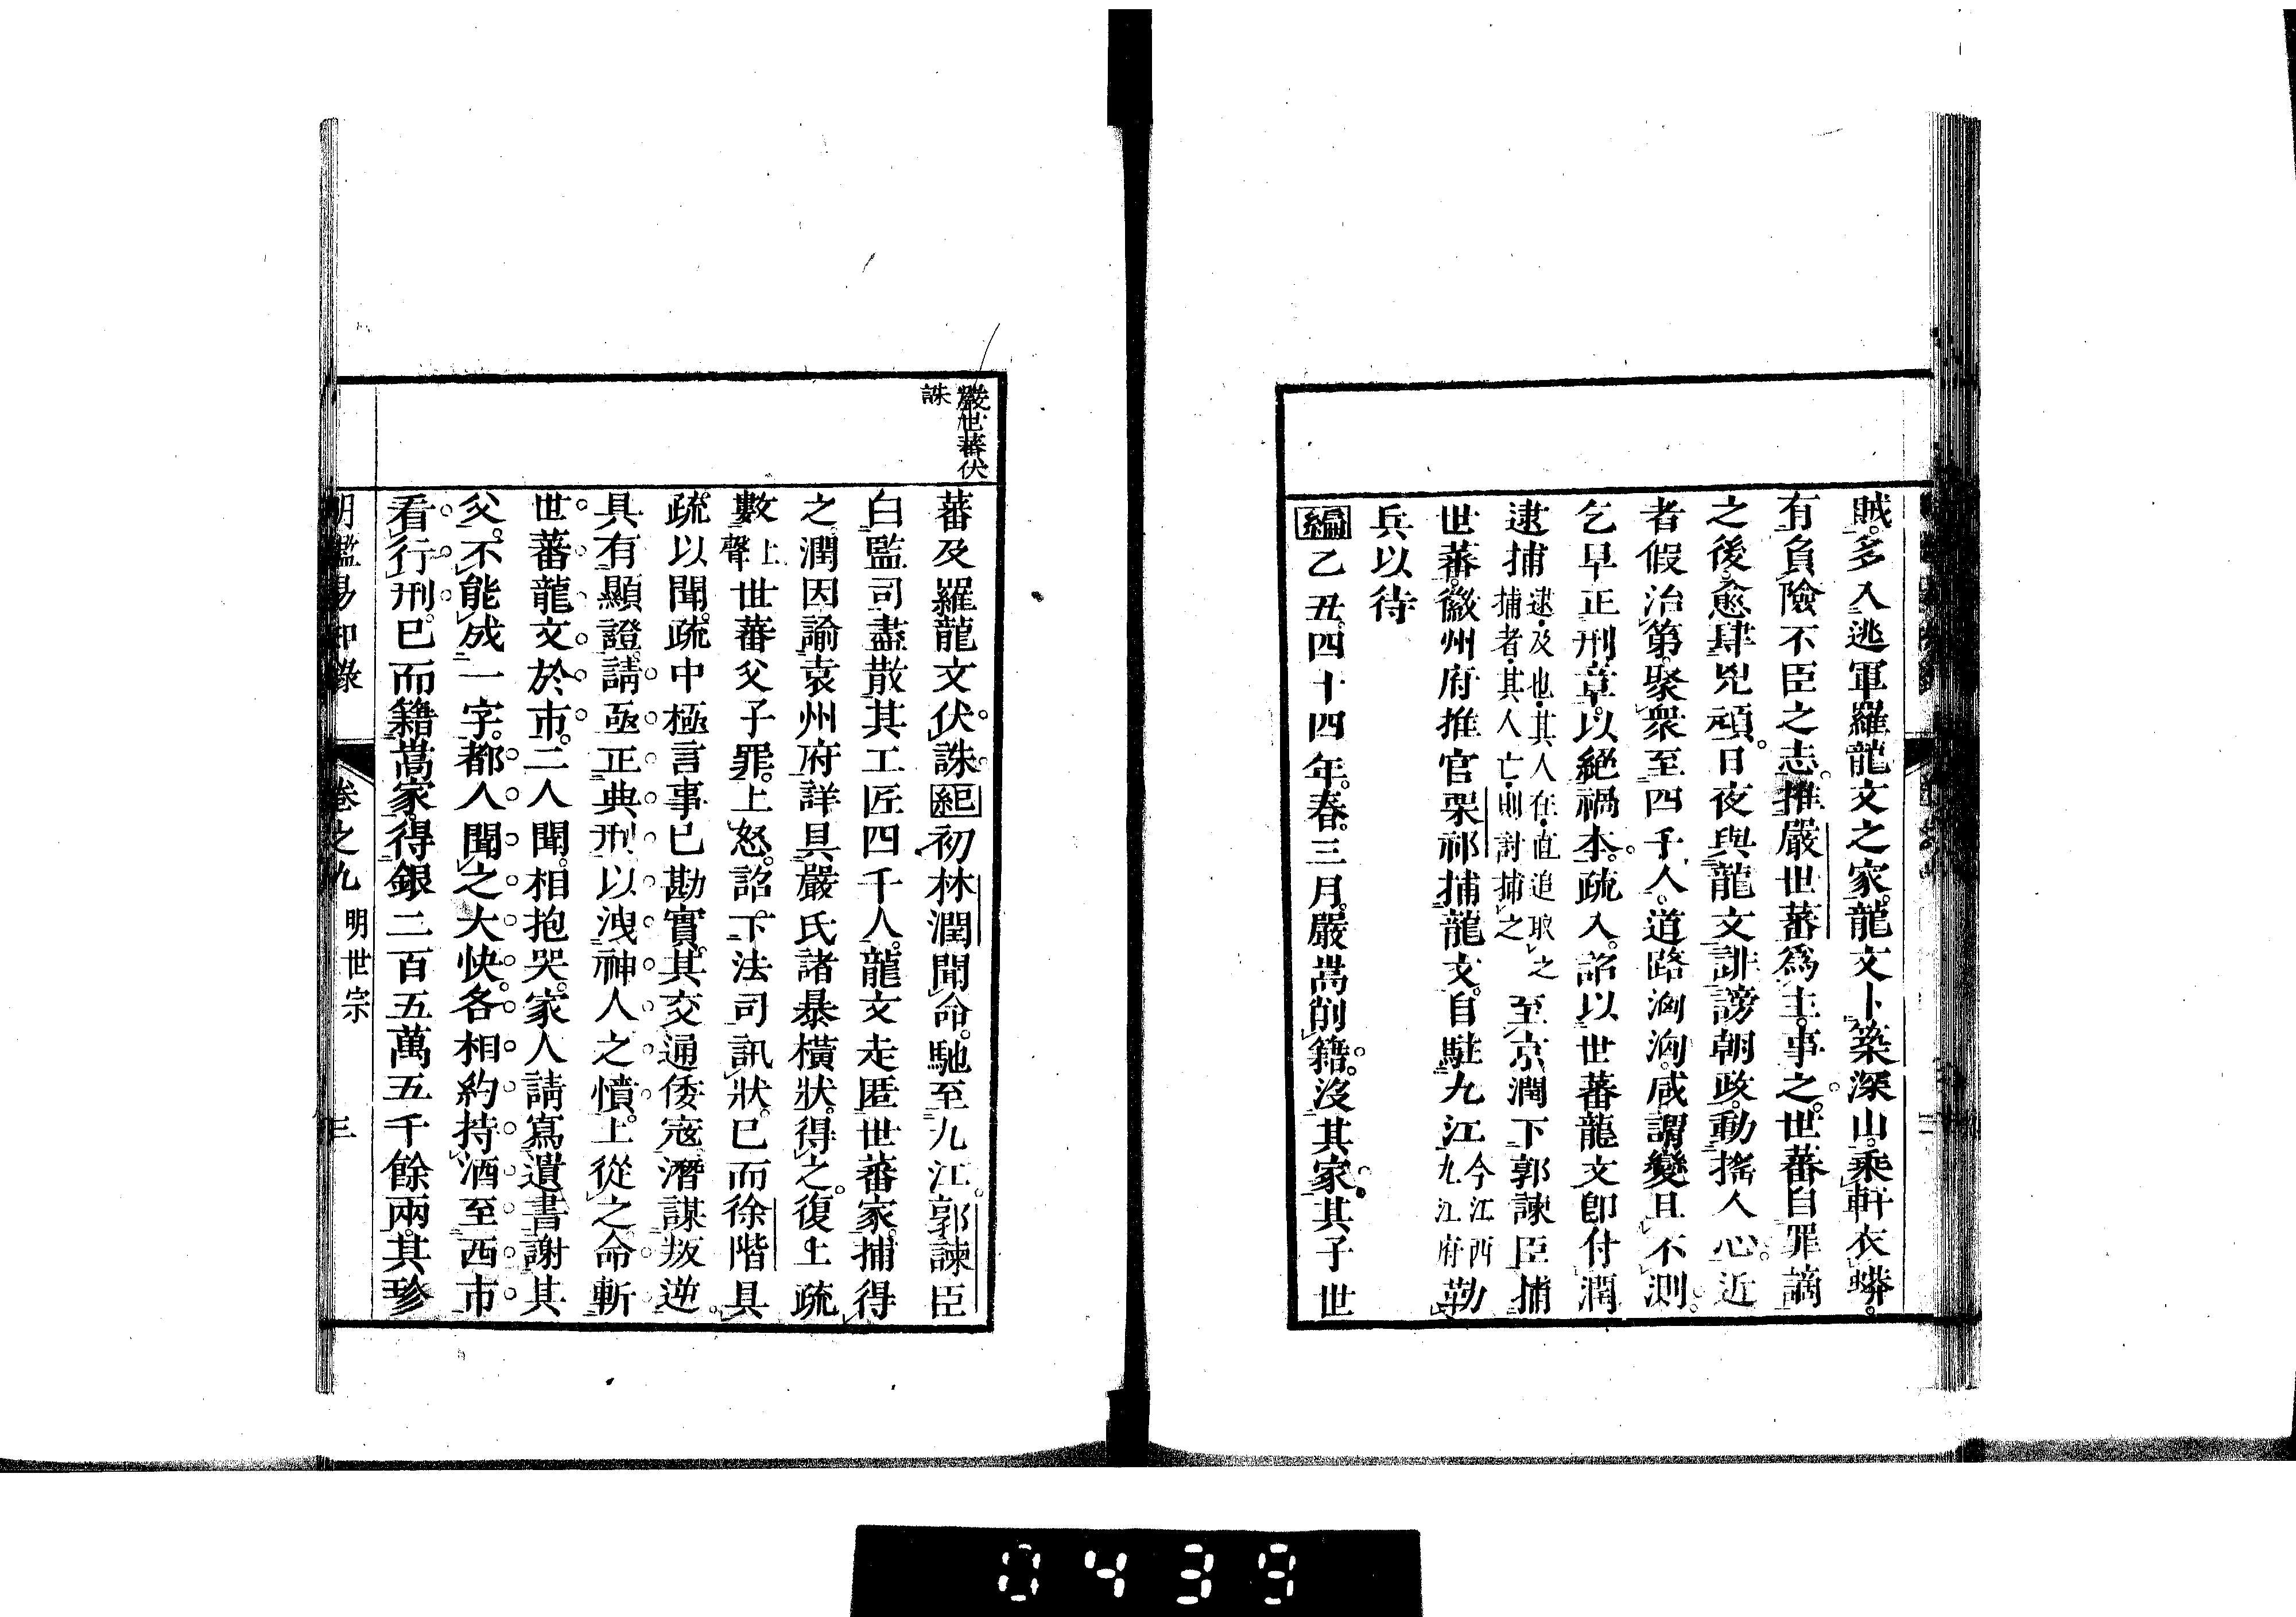 賊。多入逃軍羅龍文之家。龍文卜築深山。乘軒衣蟒。
有負險不臣之志。推嚴世蕃爲主。事之。世蕃自罪謫
之後。愈肆兇頑。日夜與龍文誹謗朝政。動搖人心。近
者假治第。聚衆至四千人。道路洶洶。咸謂變且不測。
乞早正刑章。以絕禍本。疏入。詔以世蕃龍文即付潤
逮捕逮。及也。其人在。直追取之
捕者。其人亡。則討捕之至京潤下郭諫臣捕
世蕃。徽州府推官栗祁捕龍文。自駐九江今江西
九江府勒
兵以待
編乙丑。四十四年。春。三月。嚴嵩削籍。沒其家。其子世
嚴世蕃伏
誅
蕃及羅龍文伏誅。紀初林潤聞命。馳至九江。郭諫臣
白監司盡散其工匠四千人。龍文走匿世蕃家。捕得
之。潤因諭袁州府詳具嚴氏諸暴橫狀。得之。復上疏
數上
聲世蕃父子罪。上怒。詔下法司訊狀。已而徐階具
疏以聞。疏中極言事已勘實。其交通倭寇潛謀叛逆。
具有顯證。請亟正典刑以洩神人之憤。上從之命斬
世蕃龍文於市。二人聞。相抱哭。家人請寫遺書謝其
父。不能成一字。都人聞之大快。各相約持酒至西市
看行刑。已而籍嵩家。得銀二百五萬五千餘兩。其珍
明鑑易知錄 卷之九 明世宗 三
0439